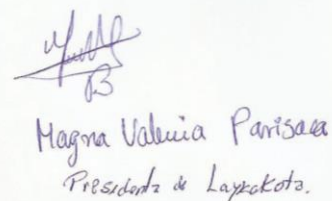 Magna Valencia Parisaca
Presidenta de Laykakota.